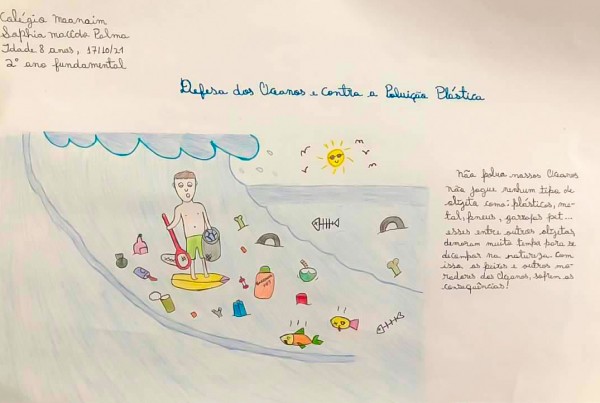 Colégio Maanaim
Sophia Macêdo Palma
Idade 8 anos, 17/10/21
2º ano fundamental
Defesa dos Oceanos e contra a Poluição Plástica
Não polua nossos Oceanos
não jogue nenhum tipo de
objeto como: plásticos, me-
tal, pneus, garrafas pet...
esses entre outros objetos,
demoram muito tempo para se
decompor na natureza. Com
isso os peixes e outros mo-
radores dos Oceanos, sofrem as
consequências!